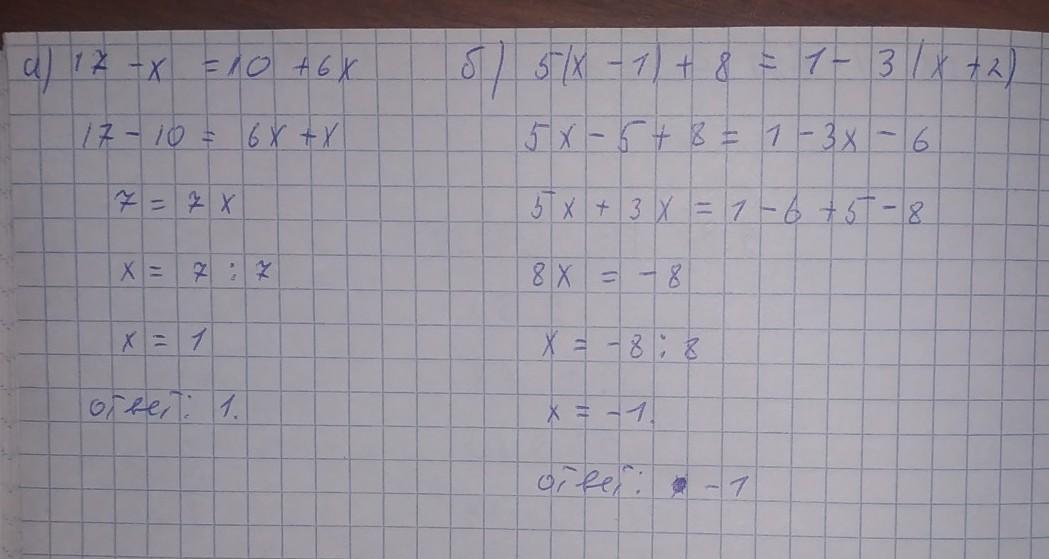 а) 17 - x = 10 + 6x
17 - 10 = 6x + x
7 = 7x
x = 7 : 7
x = 1
ответ: 1.
б) 5(x - 1) + 8 = 1 - 3(x + 2)
5x - 5 + 8 = 1 - 3x - 6
5x + 3x = 1 - 6 + 5 - 8
8x = -8
x = -8 : 8
x = -1.
ответ: -1